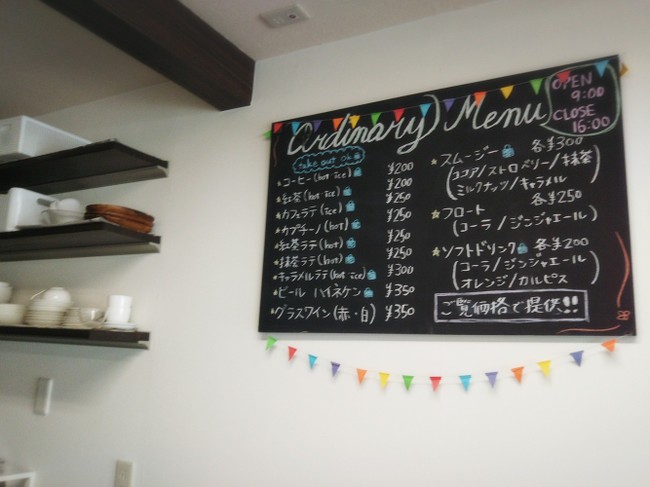 Ordinary Menu
OPEN
9:00
CLOSE
16:00
take out ok
コーヒー(hot ice) ¥200
紅茶(hot ice) ¥200
カフェラテ(hot ice) ¥250
カプチーノ(hot) ¥250
紅茶ラテ(hot) ¥250
抹茶ラテ(hot) ¥250
キャラメルラテ(hot ice) ¥300
ビール ハイネケン ¥350
グラスワイン(赤・白) ¥350
スムージー 各¥300
(ココア/ストロベリー/抹茶
ミルクナッツ/キャラメル)
フロート 各¥250
(コーラ/ジンジャエール)
ソフトドリンク 各¥200
(コーラ/ジンジャエール
オレンジ/カルピス)
ご覧価格で提供!!